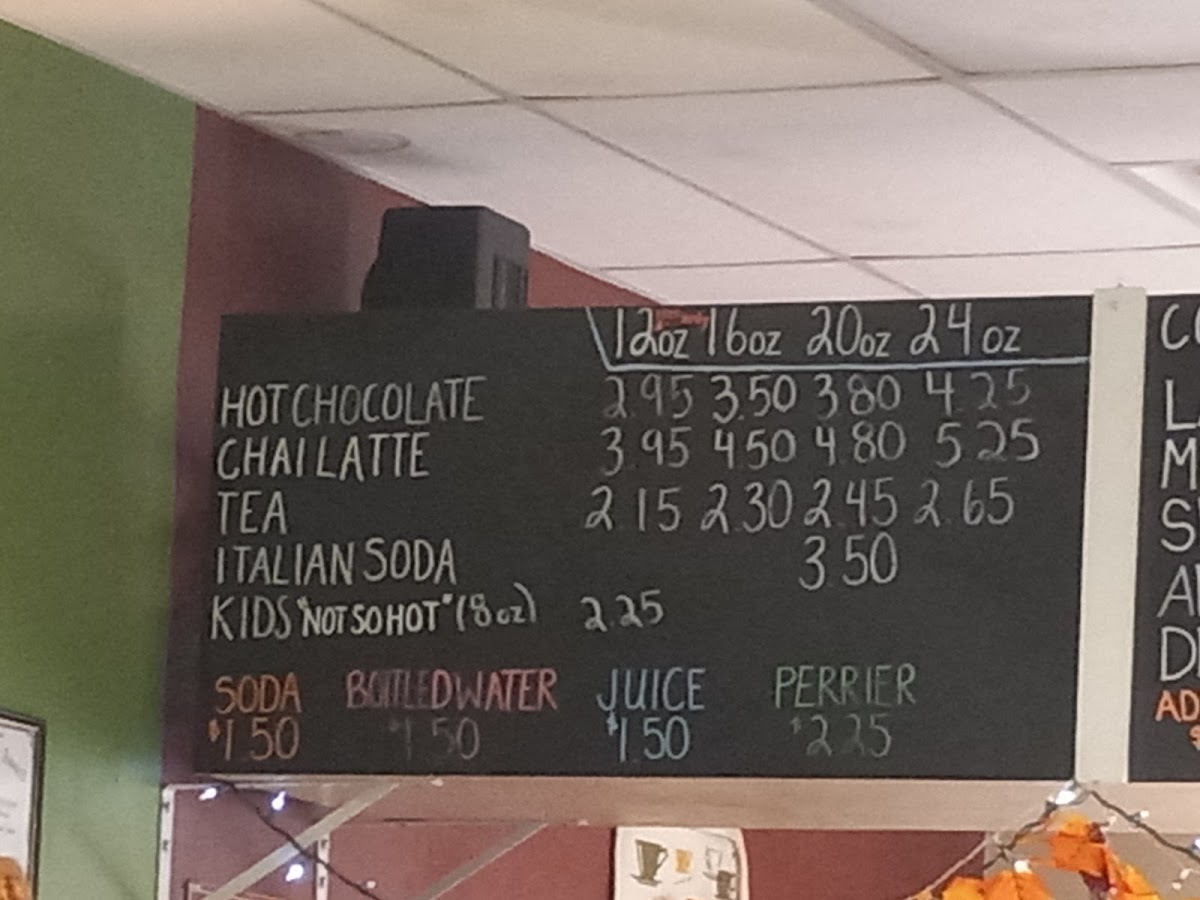 12oz 16oz 20oz 24oz
HOT CHOCOLATE 2.95 3.50 3.80 4.25
CHAI LATTE 3.95 4.50 4.80 5.25
TEA 2.15 2.30 2.45 2.65
ITALIAN SODA 3.50
KIDS "NOT SO HOT" (8oz) 2.25
SODA BOTTLED WATER JUICE PERRIER
$1.50 $1.50 $1.50 $2.25